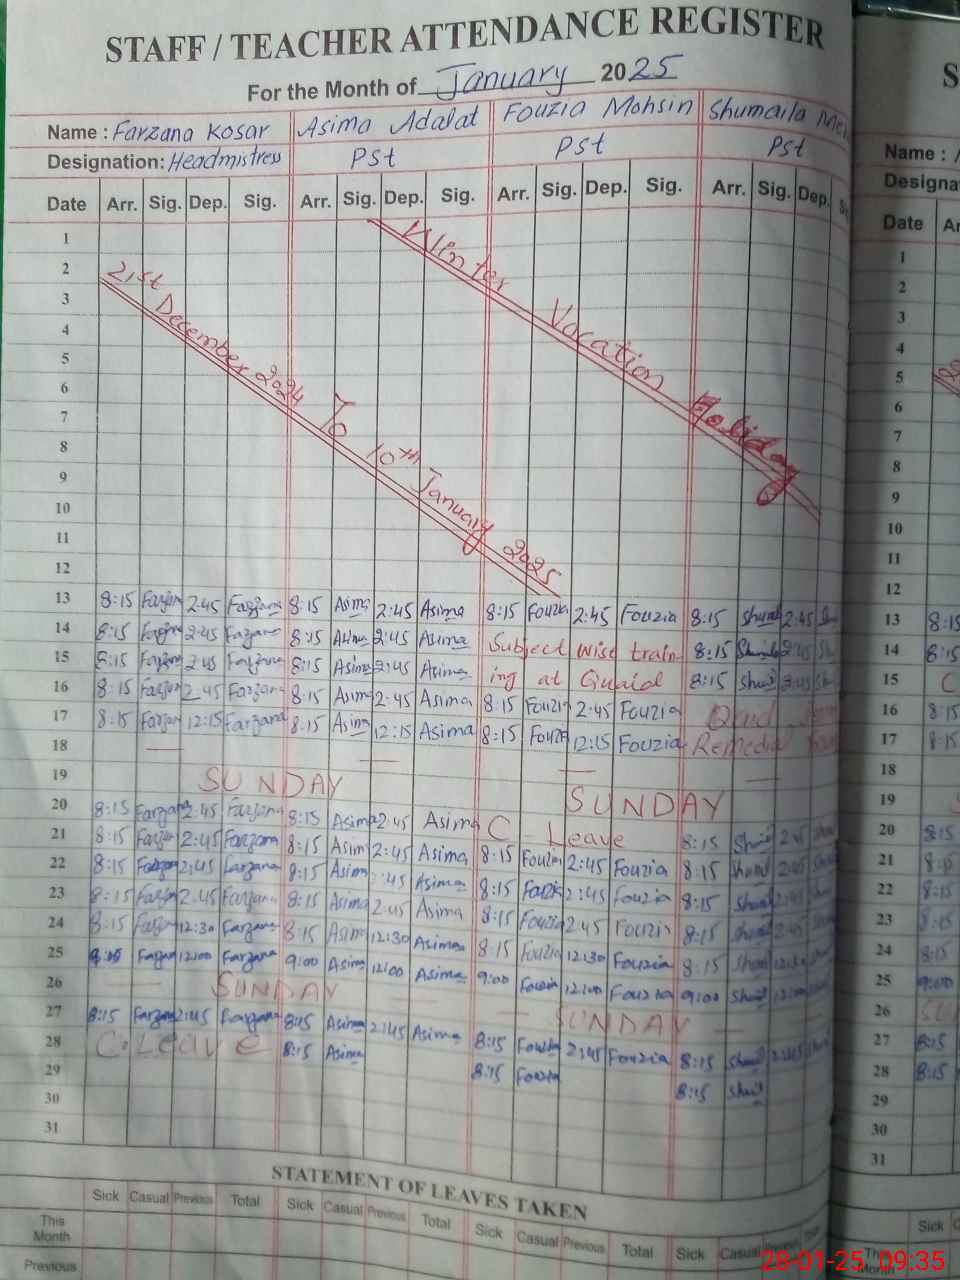 STAFF / TEACHER ATTENDANCE REGISTER
For the Month of January 2025
Name : Farzana Kosar Asima Adalat Fouzia Mohsin Shumaila
Designation: Headmistress Pst Pst Pst
Date Arr. Sig. Dep. Sig. Arr. Sig. Dep. Sig. Arr. Sig. Dep. Sig. Arr. Sig. Dep.
1
2
3
4
5
6
7
8
9
10
11
12
Winter Vacation Holiday
21st December 2024 To 10th January 2025
13 8:15 Farzana 2:45 Farzana 8:15 Asima 2:45 Asima 8:15 Fouzia 2:45 Fouzia 8:15 2:45
14 8:15 Farzana 2:45 Farzana 8:15 Asima 2:45 Asima Subject wise train- 8:15 2:45
15 8:15 Farzana 2:45 Farzana 8:15 Asima 2:45 Asima ing at Quaid 8:15 2:45
16 8:15 Farzana 2:45 Farzana 8:15 Asima 2:45 Asima 8:15 Fouzia 2:45 Fouzia
17 8:15 Farzana 12:15 Farzana 8:15 Asima 12:15 Asima 8:15 Fouzia 12:15 Fouzia Remedial
18
19 SUNDAY SUNDAY
20 8:15 Farzana 2:45 Farzana 8:15 Asima 2:45 Asima C - Leave 8:15 2:45
21 8:15 Farzana 2:45 Farzana 8:15 Asima 2:45 Asima 8:15 Fouzia 2:45 Fouzia 8:15 2:45
22 8:15 Farzana 2:45 Farzana 8:15 Asima 2:45 Asima 8:15 Fouzia 2:45 Fouzia 8:15 2:45
23 8:15 Farzana 2:45 Farzana 8:15 Asima 2:45 Asima 8:15 Fouzia 2:45 Fouzia 8:15 2:45
24 8:15 Farzana 12:30 Farzana 8:15 Asima 12:30 Asima 8:15 Fouzia 12:30 Fouzia 8:15 12:30
25 Farzana 12:00 Farzana 9:00 Asima 12:00 Asima 9:00 Fouzia 12:00 Fouzia 9:00 12:00
26 SUNDAY SUNDAY
27 8:15 Farzana 2:45 Farzana 8:15 Asima 2:45 Asima 8:15 Fouzia 2:45 Fouzia 8:15 2:45
28 C. Leave 8:15 Asima 8:15 Fouzia 8:15
29
30
31
STATEMENT OF LEAVES TAKEN
Sick Casual Previous Total Sick Casual Previous Total Sick Casual Previous Total Sick Casual
This Month
Previous
Name :
Date
1
2
3
4
5
6
7
8
9
10
11
12
13 8:15
14 8:15
15 C
16 8:15
17 8:15
18
19
20 8:15
21 8:15
22 8:15
23 8:15
24 8:15
25 9:00
26
27 8:15
28 8:15
29
30
31
Sick
This Month
28-01-25 09:35